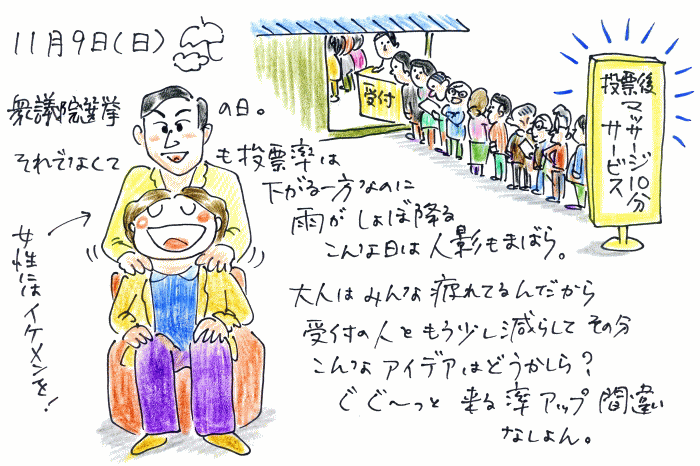 11月9日(日)
衆議院選挙の日。
それでなくても投票率は
下がる一方なのに
雨がしょぼ降る
こんな日は人影もまばら。
大人はみんな疲れてるんだから
受付の人ともう少し減らしてその分
こんなアイデアはどうかしら?
ぐぐ〜っと来る率アップ間違い
なしよん。
女性にはイケメンを!
受付
投票後
マッサージ10分
サービス